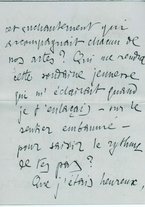 cet enchantement qui
accompagnait chacun de
nos actes ? Qui me rendra
cette soudaine jeunesse
qui m'éclairait quand
je t'enlaçais – sur le
sentier embaumé –
pour saisir le rythme
de tes pas ?
Que j'étais heureux,